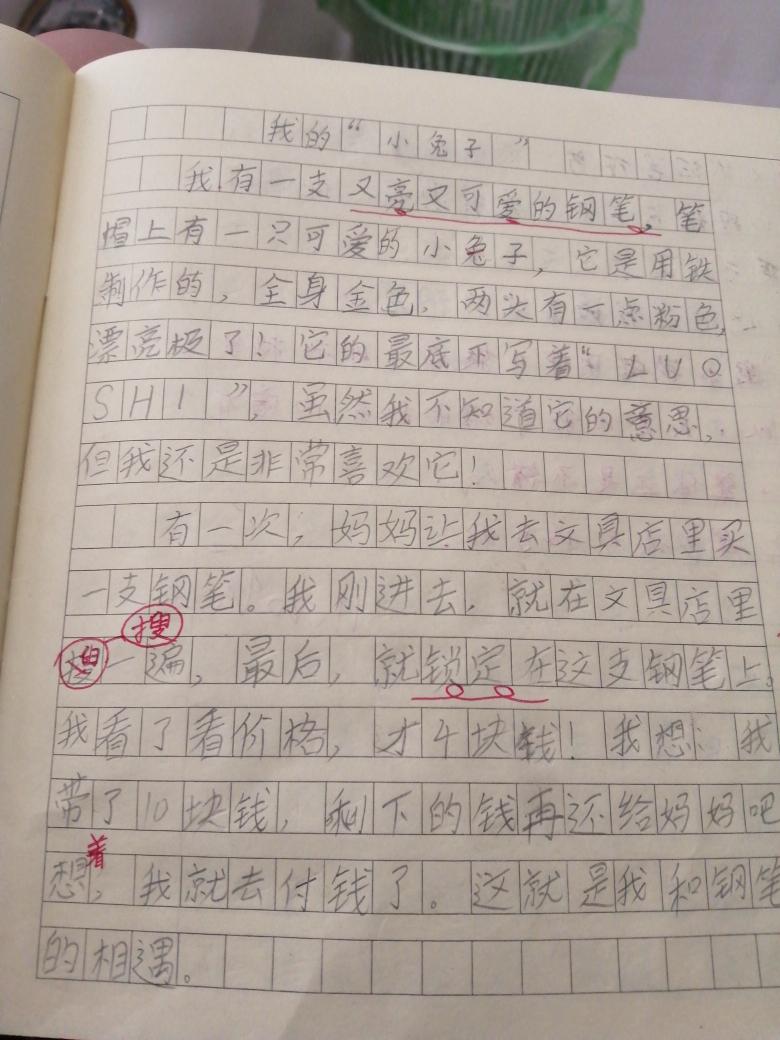 我的“小兔子”
我有一支又亮又可爱的钢笔，笔
帽上有一只可爱的小兔子，它是用铁
制作的，全身金色，两头有一点粉色，
漂亮极了！它的最底下写着“LUO
SHI”，虽然我不知道它的意思，
但我还是非常喜欢它！
有一次，妈妈让我去文具店里买
一支钢笔。我刚进去，就在文具店里
搜
搜一遍，最后，就锁定在这支钢笔上。
我看了看价格，才4块钱！我想：我
带了10块钱，剩下的钱再还给妈妈吧
着
想，我就去付钱了。这就是我和钢笔
的相遇。